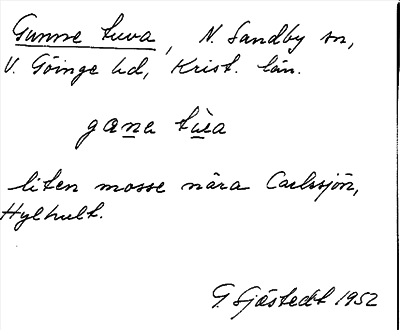 Gunne tuva, N. Sandby sn,
V. Göinge hd, Krist. län.
gana tùa
liten mosse nära Carlssjön,
Hylhult.
G. Sjöstedt 1952